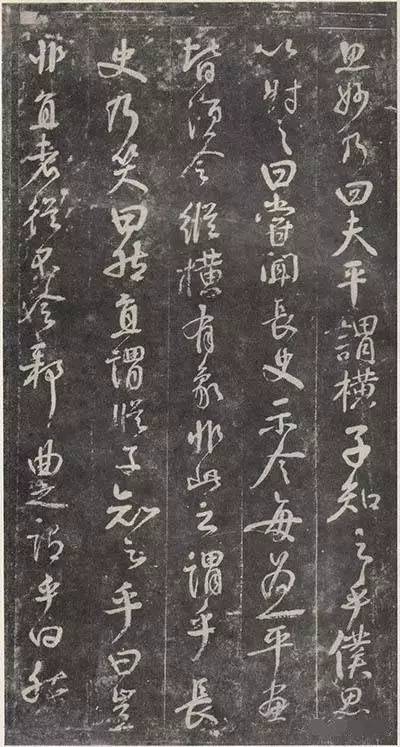 思妙乃曰夫平謂橫子知之乎僕思
以對之曰嘗聞長史示令每為一平畫
皆須令縱橫有象非此之謂乎長
史乃笑曰然直謂縱子知之乎曰豈
非直者從不令邪曲之謂乎曰然